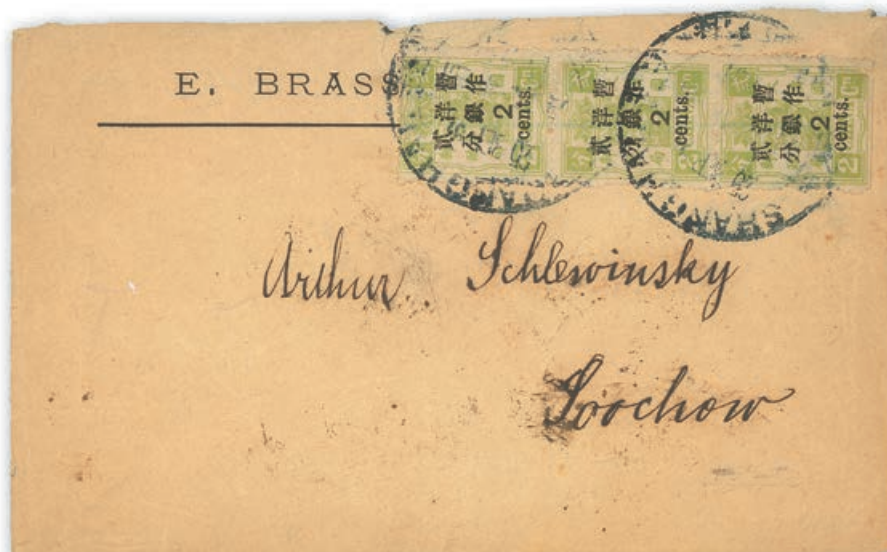 E. BRASS
暫作
洋銀
貳分
2
cents.
暫作
洋銀
貳分
2
cents.
暫作
洋銀
貳分
2
cents.
SHANGHAI
Arthur Schlewinsky
Soochow